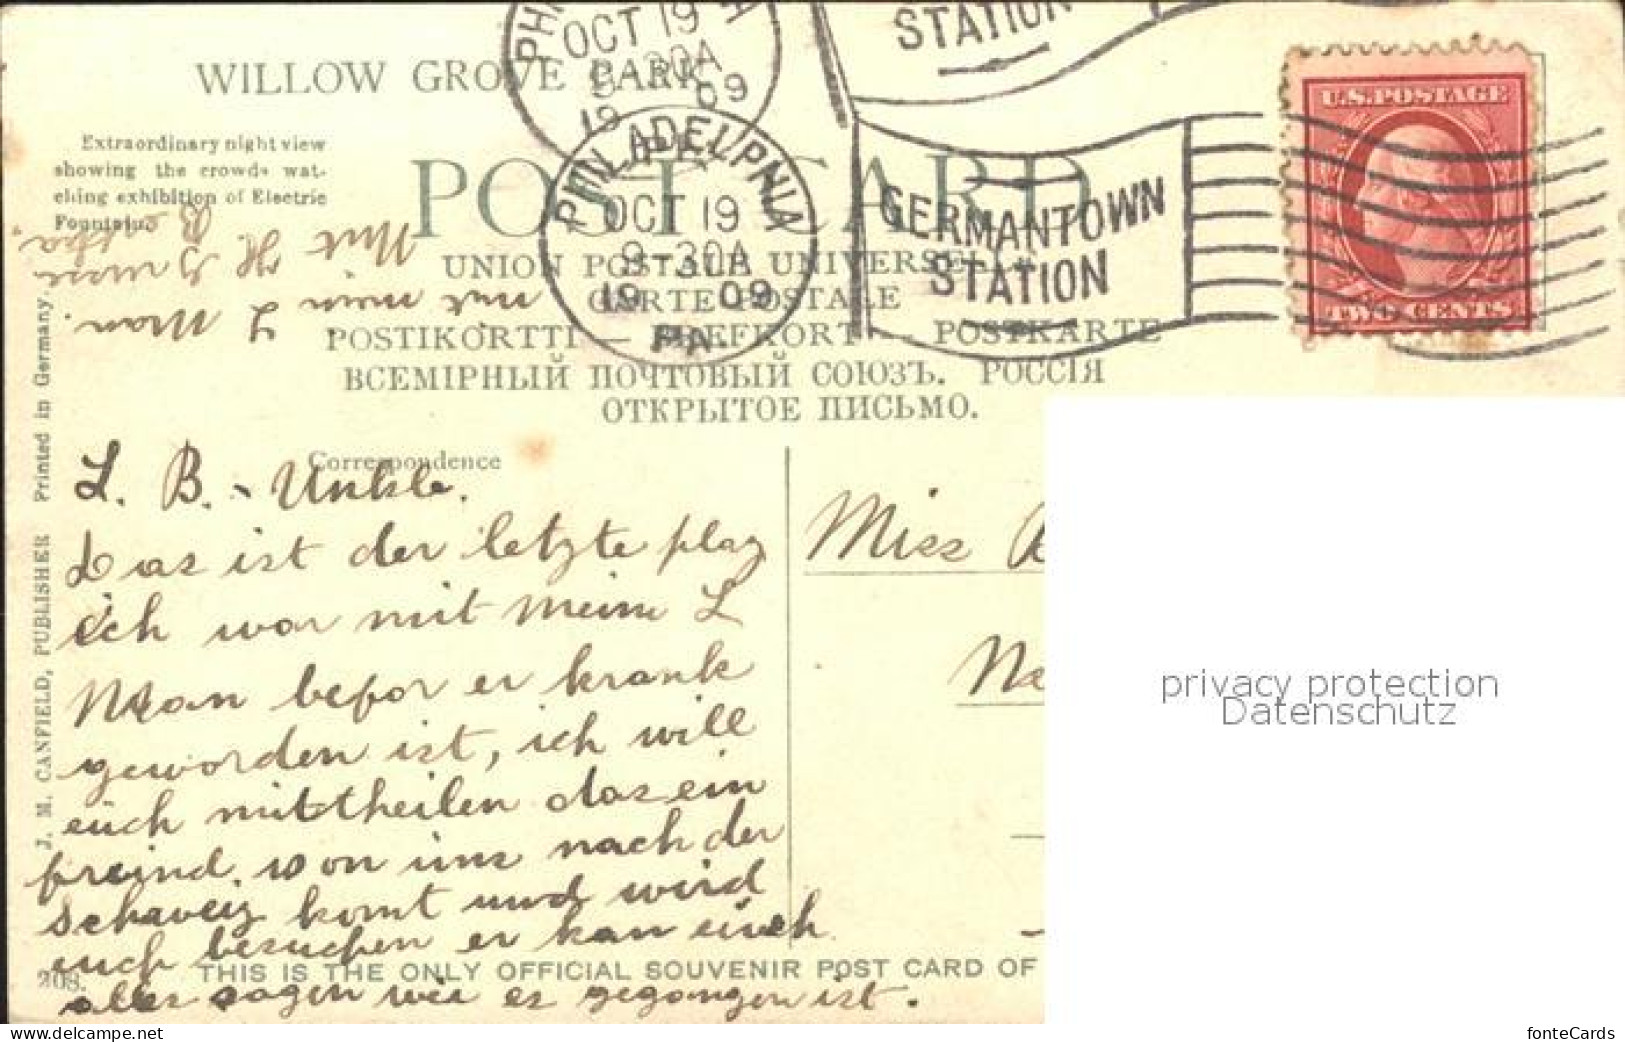 PHILADELPHIA
OCT 19
9-30A
19 09
PA
STATION
WILLOW GROVE PARK
Extraordinary night view
showing the crowds wat-
ching exhibition of Electric
Fountain.
POST CARD
GERMANTOWN
STATION
U.S. POSTAGE
TWO CENTS
UNION POSTALE UNIVERSELLE
CARTE POSTALE
POSTIKORTTI — BREFKORT — POSTKARTE
ВСЕМІРНЫЙ ПОЧТОВЫЙ СОЮЗЪ. РОССІЯ
ОТКРЫТОЕ ПИСЬМО.
Mit H
mit mein L Man.
Correspondence
L. B. - Unkle.
Das ist der letzte plaz
ich war mit meine L
Man befor er krank
geworden ist, ich will
euch mittheilen das ein
freind von uns nach der
Schaveiz komt und wird
euch besuchen er kan eiuch
alles sagen wie es gegangen ist.
Miss
Ne
J. M. CANFIELD, PUBLISHER Printed in Germany.
208.
THIS IS THE ONLY OFFICIAL SOUVENIR POST CARD OF
privacy protection
Datenschutz
www.delcampe.net
fonteCards